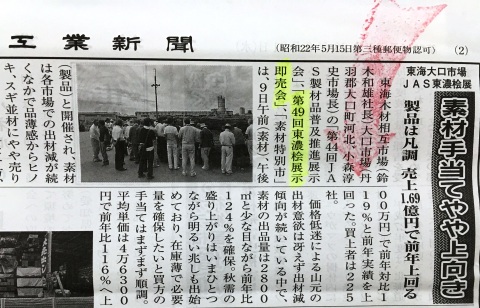 工業新聞
(昭和22年5月15日第三種郵便物認可)
(2)
東海大口市場
JAS東濃桧展
素材手当てやや上向き
製品は凡調 売上1.69億円で前年上回る
東海木材相互市場(鈴
木和雄社長)大口市場(丹
羽郡大口町河北、小森淳
史市場長)の「第44回JA
S製材品普及推進展示
会」、「第49回東濃桧展示
即売会」、「素材特別市」
は、9日午前(素材)、午後
(製品)と開催され、素材
は各市場での出材減が続
くなかで品薄感からヒノ
キ、スギ並材にやや売り
00万円)で前年対比1
19%と前年実績を上
回った。買上者は225
社。
価格低迷による山元の
出材意欲は冴えず出材減
傾向が続いている中で、
素材の出品量は2800
㎥と少な目ながら前年比
124%を確保。秋需の
盛り上がりはいまひとつ
ながら明るい兆しも出始
めており、在庫薄で必要
量を確保したいと買方の
手当てはまずまず順調。
平均単価は4万6300
円で前年比116%へ上